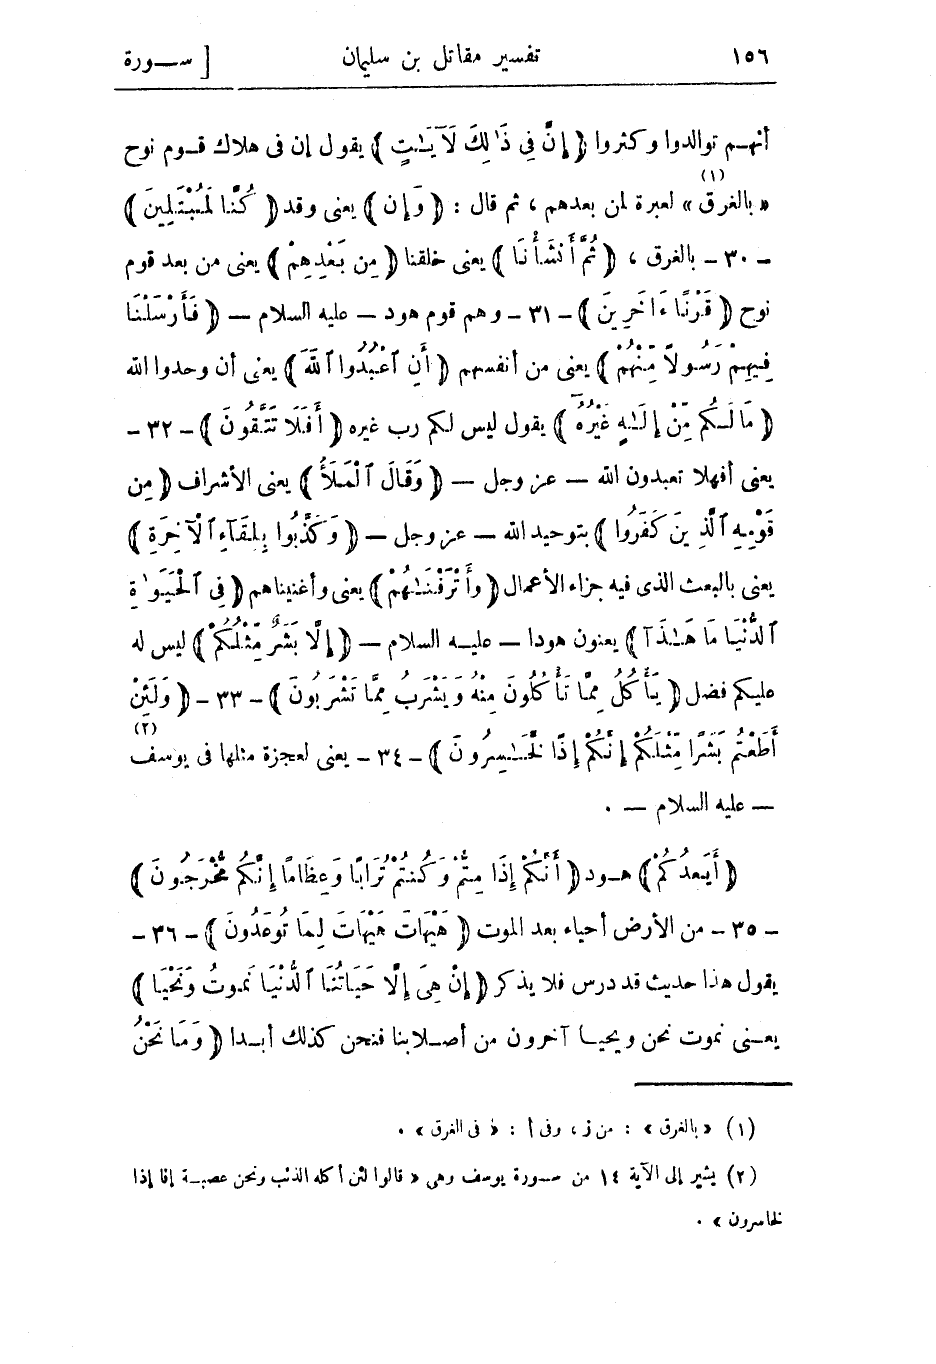 ١٥٦ تفسير مقاتل بن سليمان [ ســورة
أنهـم توالدوا وكثروا ﴿ إِنَّ فِي ذَٰلِكَ لَآيَـٰتٍ ﴾ يقول إن فى هلاك قـوم نوح
« بالغرق »(١) لعبرة لمن بعدهم ، ثم قال : ﴿ وَإِن ﴾ يعنى وقد ﴿ كُنَّا لَمُبْتَلِينَ ﴾
- ٣٠ - بالغرق ، ﴿ ثُمَّ أَنشَأْنَا ﴾ يعنى خلقنا ﴿ مِن بَعْدِهِمْ ﴾ يعنى من بعد قوم
نوح ﴿ قَرْنًا ءَاخَرِينَ ﴾ - ٣١ - وهم قوم هود — عليه السلام — ﴿ فَأَرْسَلْنَا
فِيهِمْ رَسُولًا مِّنْهُمْ ﴾ يعنى من أنفسهم ﴿ أَنِ ٱعْبُدُوا ٱللَّهَ ﴾ يعنى أن وحدوا الله
﴿ مَا لَـكُم مِّنْ إِلَـٰهٍ غَيْرُهُ ﴾ يقول ليس لكم رب غيره ﴿ أَفَلَا تَتَّقُونَ ﴾ - ٣٢ -
يعنى أفهلا تعبدون الله — عز وجل — ﴿ وَقَالَ ٱلْمَلَأُ ﴾ يعنى الأشراف ﴿ مِن
قَوْمِهِ ٱلَّذِينَ كَفَرُوا ﴾ بتوحيد الله — عز وجل — ﴿ وَكَذَّبُوا بِلِقَآءِ ٱلْآخِرَةِ ﴾
يعنى بالبعث الذى فيه جزاء الأعمال ﴿ وَأَتْرَفْنَـٰهُمْ ﴾ يعنى وأغنيناهم ﴿ فِي ٱلْحَيَوٰةِ
ٱلدُّنْيَا مَا هَـٰذَآ ﴾ يعنون هودا — عليـه السلام — ﴿ إِلَّا بَشَرٌ مِّثْلُكُمْ ﴾ ليس له
عليكم فضل ﴿ يَأْكُلُ مِمَّا تَأْكُلُونَ مِنْهُ وَيَشْرَبُ مِمَّا تَشْرَبُونَ ﴾ - ٣٣ - ﴿ وَلَئِنْ
أَطَعْتُم بَشَرًا مِّثْلَكُمْ إِنَّكُمْ إِذًا لَّخَـٰسِرُونَ ﴾ - ٣٤ - يعنى لعجزة مثلها فى يوسف(٢)
— عليه السلام — .
﴿ أَيَعِدُكُمْ ﴾ هـود ﴿ أَنَّكُمْ إِذَا مِتُّمْ وَكُنتُمْ تُرَابًا وَعِظَامًا إِنَّكُم مُّخْرَجُونَ ﴾
- ٣٥ - من الأرض أحياء بعد الموت ﴿ هَيْهَاتَ هَيْهَاتَ لِمَا تُوعَدُونَ ﴾ - ٣٦ -
يقول هذا حديث قد درس فلا يذكر ﴿ إِنْ هِيَ إِلَّا حَيَاتُنَا ٱلدُّنْيَا نَمُوتُ وَنَحْيَا ﴾
يعـنى نموت نحن ويحيـا آخرون من أصـلابنا فنحن كذلك أبـدا ﴿ وَمَا نَحْنُ
(١) « بالغرق » : من ز ، وفى أ : « فى الغرق » .
(٢) يشير إلى الآية ١٤ من سـورة يوسف وهى « قالوا لئن أكله الذئب ونحن عصبـة إنا إذا
لخاسرون » .